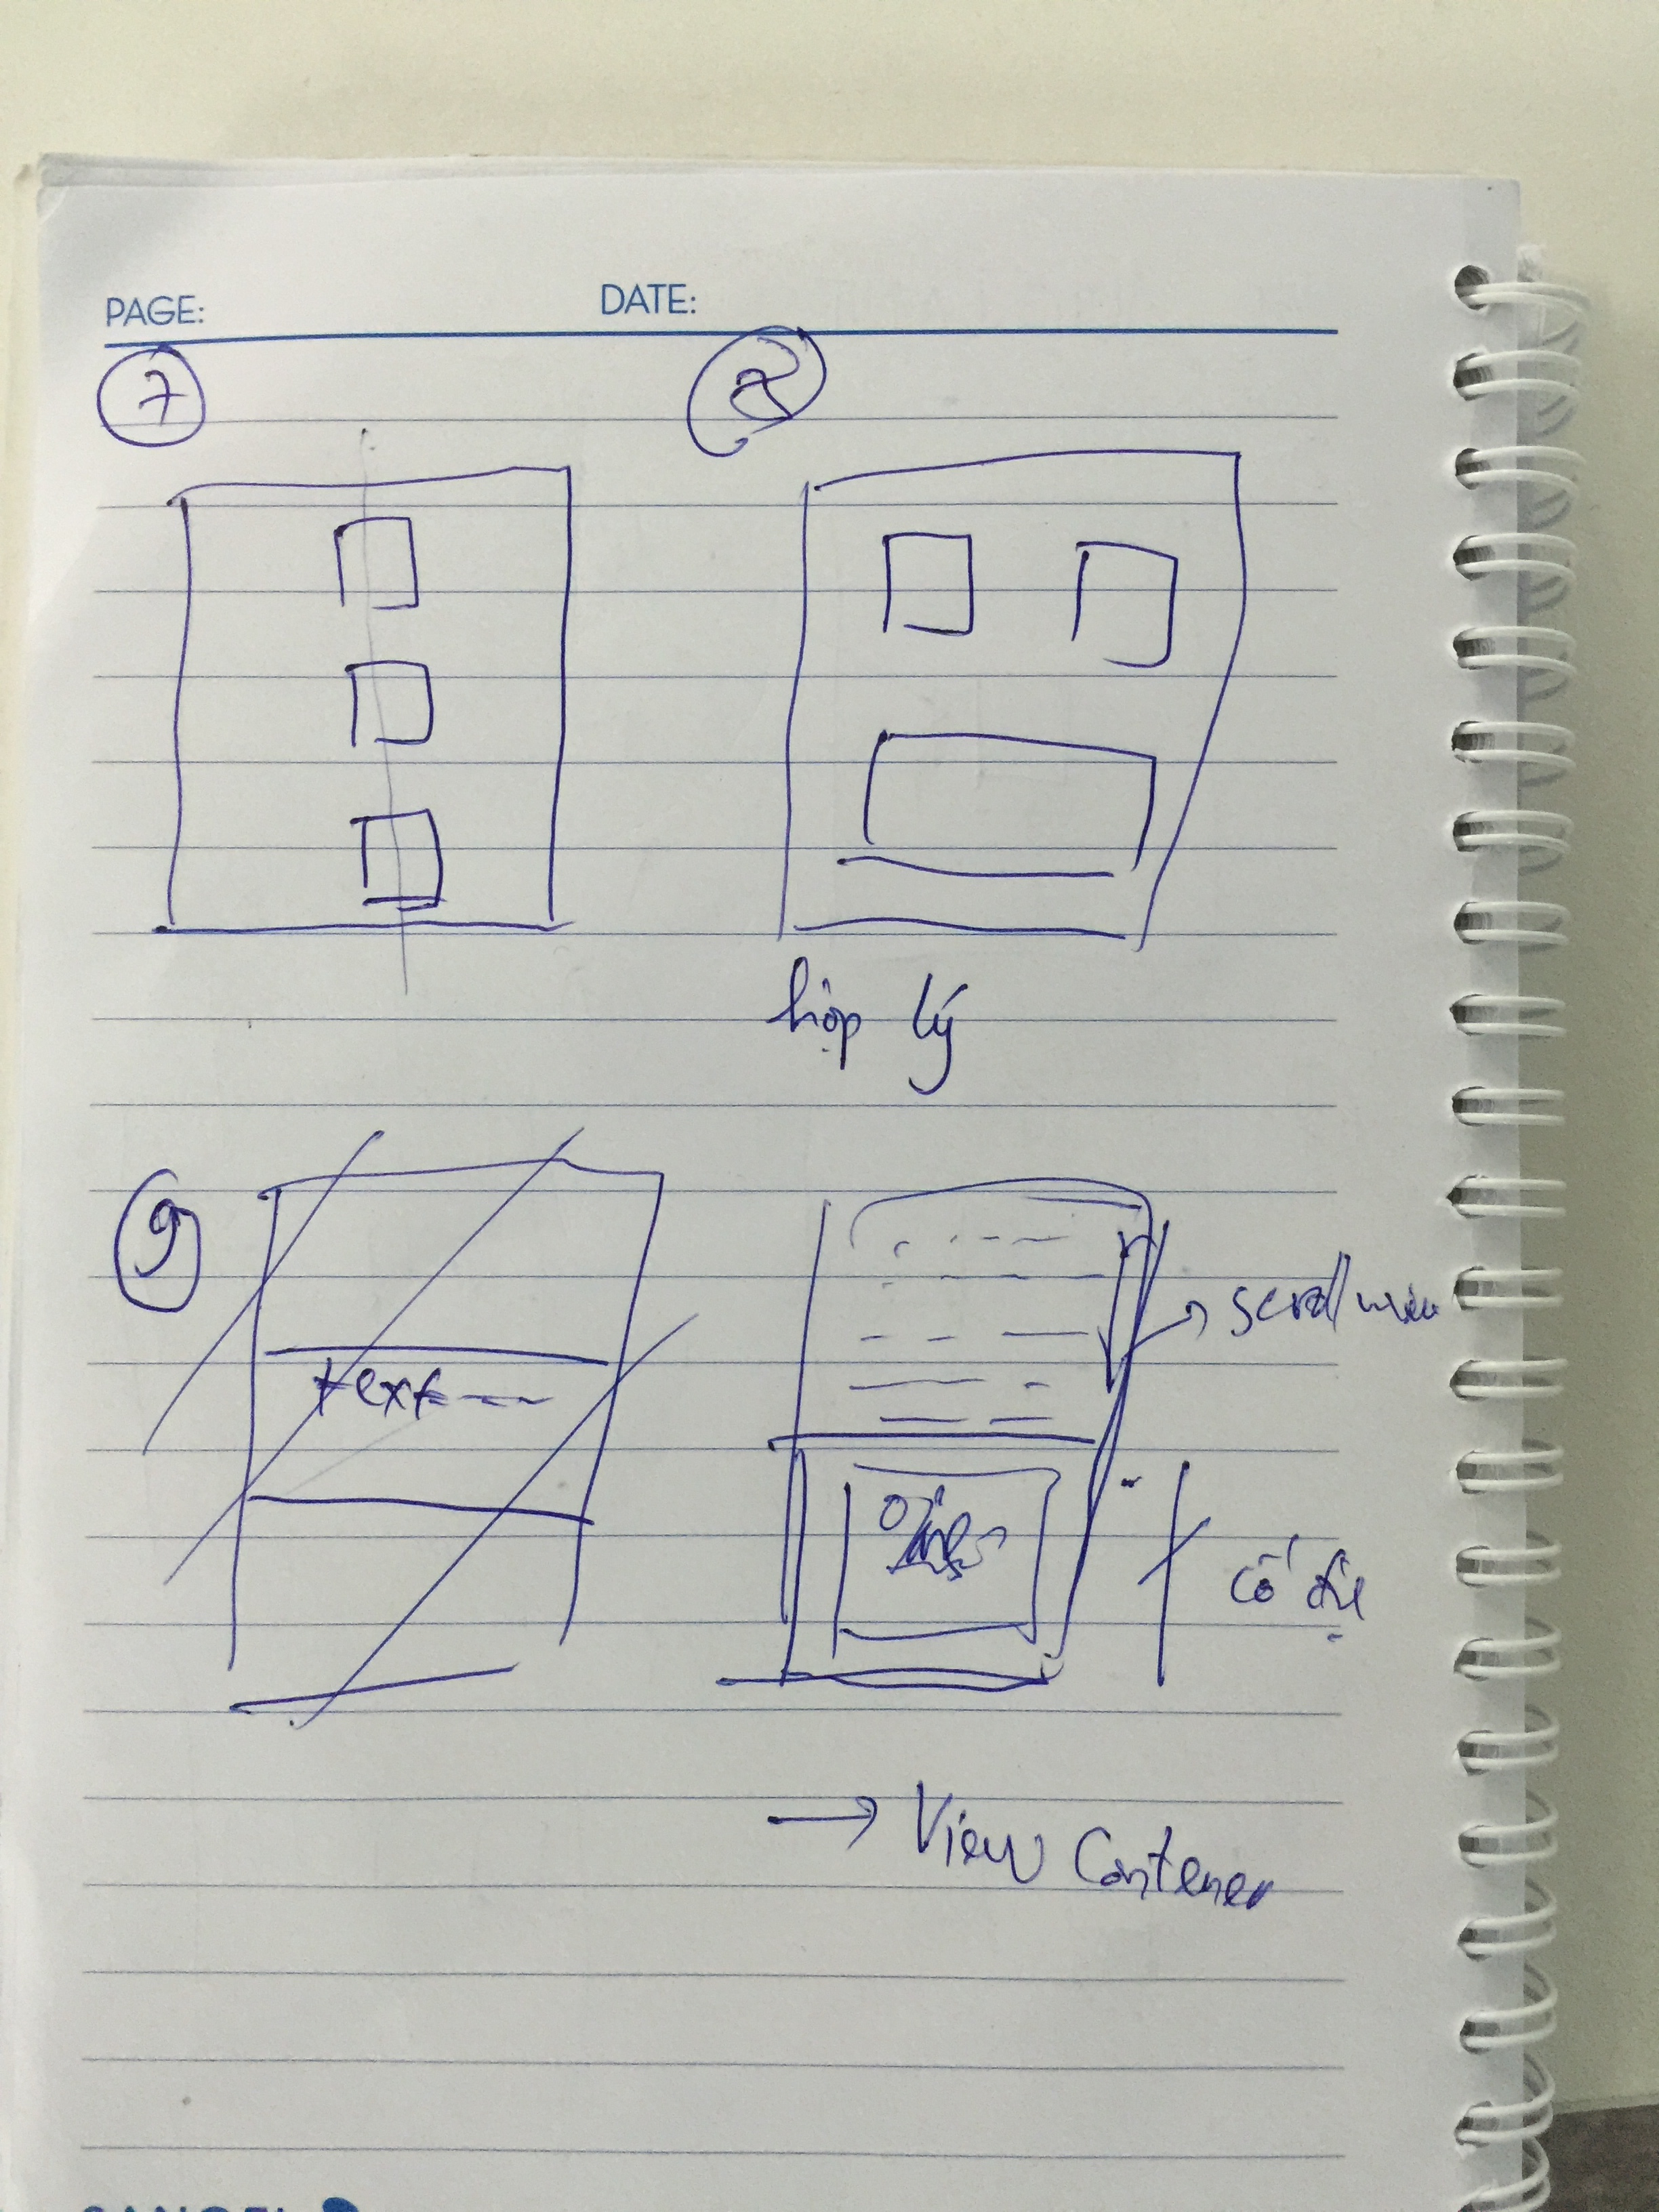 PAGE: DATE:
7 8
hợp lý
9
text
scroll view
cố định
→ View Contener